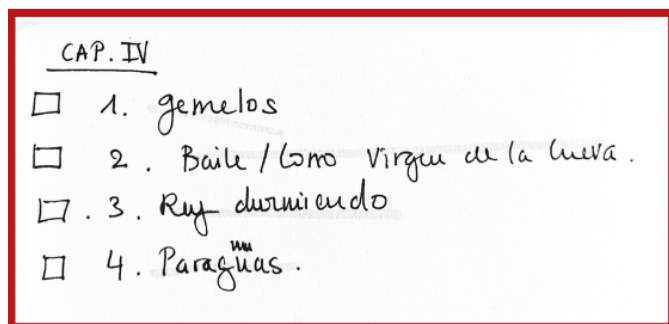 CAP. IV
1. gemelos
2. Baile / Como Virgen de la Cueva.
3. Rey durmiendo
4. Paragüas.